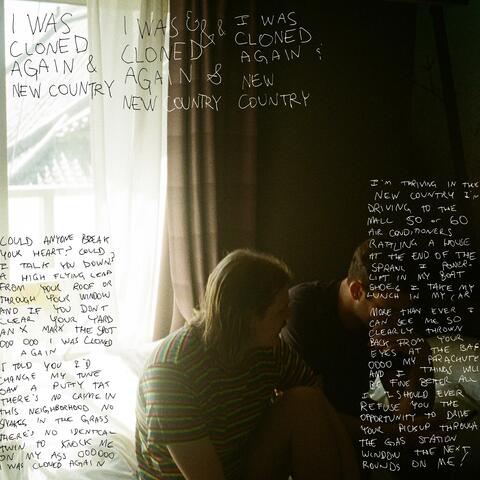 I WAS
CLONED
AGAIN &
NEW COUNTRY
I WAS & & &
CLONED
AGAIN &
NEW COUNTRY
I WAS
CLONED
AGAIN &
NEW
COUNTRY
COULD ANYONE BREAK
YOUR HEART? COULD
I TALK YOU DOWN?
A HIGH FLYING LEAP
FROM YOUR ROOF OR
THROUGH YOUR WINDOW
AND IF YOU DON'T
CLEAR YOUR YARD
AN X MARK THE SPOT
OOO OOO I WAS CLONED
AGAIN
I TOLD YOU I'D
CHANGE MY TUNE
SAW A PUTTY TAT
THERE'S NO CRYME IN
THIS NEIGHBORHOOD NO
SNAKES IN THE GRASS
THERE'S NO IDENTICAL
TWIN TO KNOCK ME
ON MY ASS OOOOOO
I WAS CLONED AGAIN
I'M THRIVING IN THE
NEW COUNTRY I'M
DRIVING TO THE
MALL 50 OR 60
AIR CONDITIONERS
RATTLING A HOUSE
AT THE END OF THE
SPRAWL I POWER-
LIFT IN MY BOAT
SHOES I TAKE MY
LUNCH IN MY CAR
MORE THAN EVER I
CAN SEE ME SO
CLEARLY THROWN
BACK FROM YOUR
EYES AT THE
OOOO MY PARACHUTE
AND I THINGS WILL
BE FINE AFTER ALL
I I SHOULD EVER
REFUSE YOU THE
OPPORTUNITY TO DRIVE
YOUR PICKUP THROUGH
THE GAS STATION
WINDOW THE NEXT
ROUNDS ON ME!